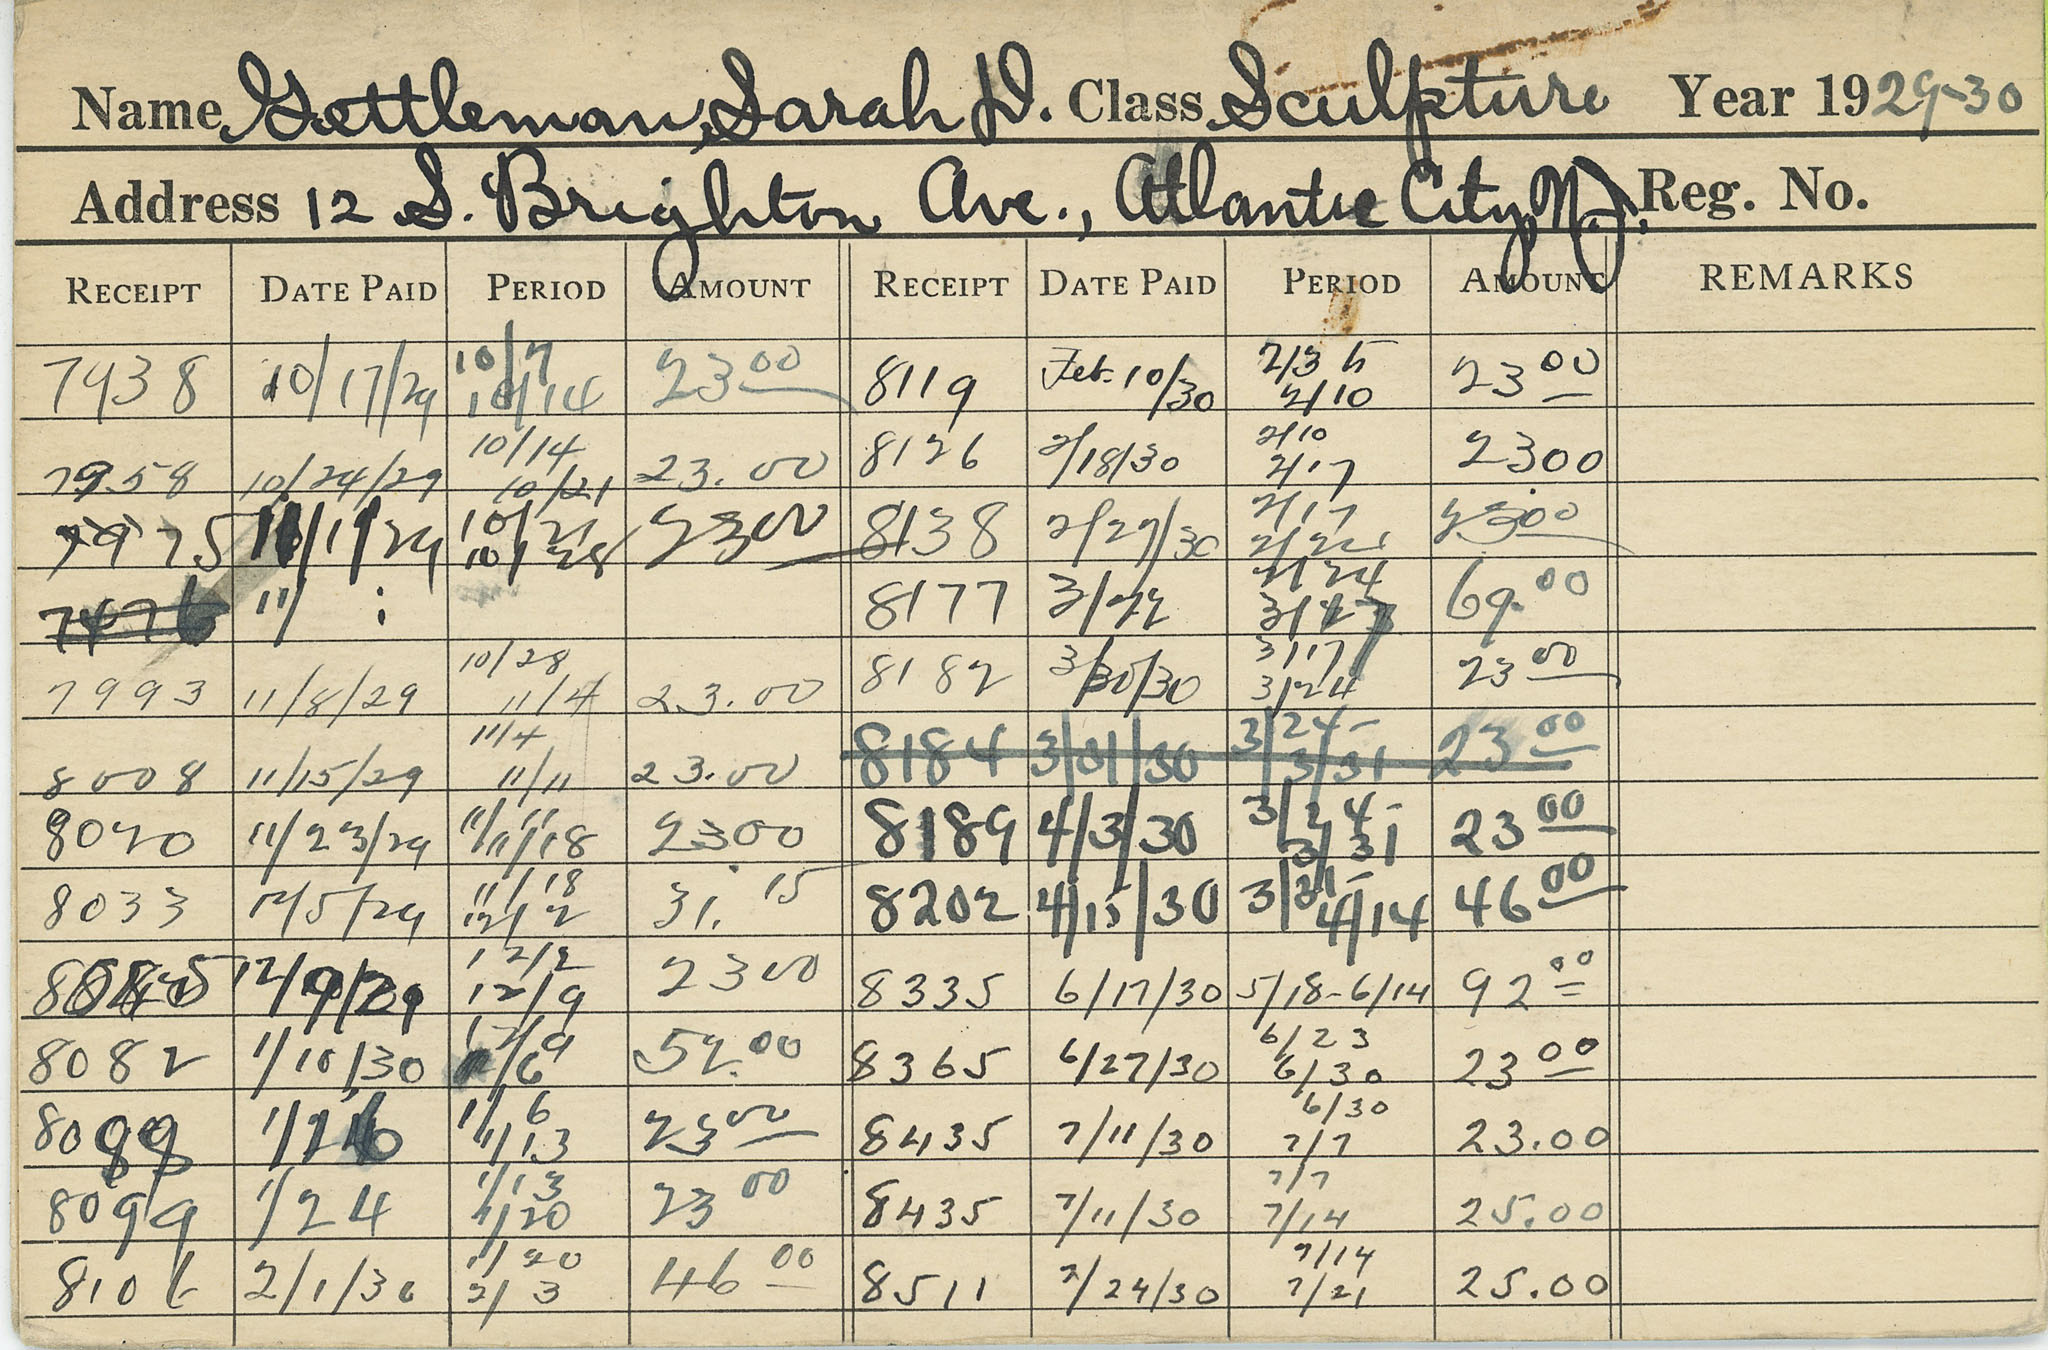 Name Gettleman, Sarah D. Class Sculpture Year 1929-30
Address 12 S. Brighton Ave., Atlantic City, N.J. Reg. No.
RECEIPT DATE PAID PERIOD AMOUNT RECEIPT DATE PAID PERIOD AMOUNT REMARKS
7938 10/17/29 10/7 10/14 23 00 8119 Feb. 10/30 2/3 2/10 23 00
7958 10/24/29 10/14 10/21 23.00 8126 2/18/30 2/10 2/17 2300
7975 11/1/29 10/21 10/28 2300 8138 2/27/30 2/17 2/24 2300
7976 11/ 8177 3/22 2/24 69.00
7993 11/8/29 10/28 11/4 23.00 8182 3/30/30 3/17 3/24 23 00
8008 11/15/29 11/4 11/11 23.00 8184 3/31/30 3/24- 3/31 23 00
8020 11/23/29 11/11 11/18 2300 8189 4/3/30 3/24- 3/31 23 00
8033 12/5/29 11/18 12/2 31.15 8202 4/15/30 3/31- 4/14 46 00
12/9/29 12/2 12/9 2300 8335 6/17/30 5/18-6/14 92 00
8082 1/10/30 12/9 1/6 52.00 8365 6/27/30 6/23 6/30 23 00
1/6 1/13 23 00 8435 7/11/30 6/30 7/7 23.00
8099 1/24 1/13 1/20 23 00 8435 7/11/30 7/7 7/14 25.00
8106 2/1/30 1/20 2/3 46 00 8511 7/24/30 7/14 7/21 25.00